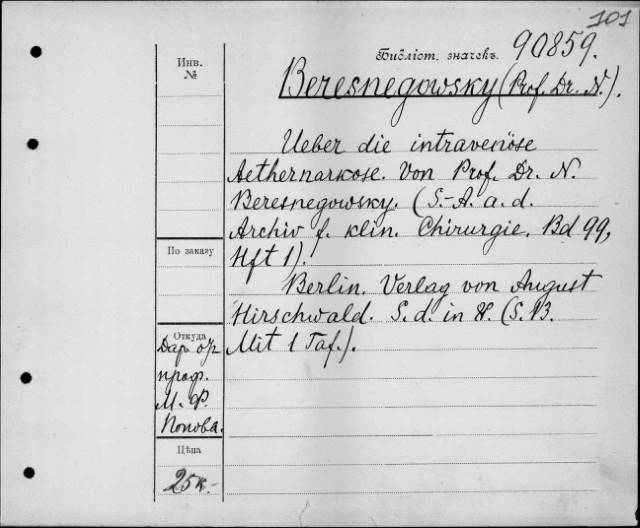 101
Библіот. значекъ. 90859.
Инв.
№
Beresnegowsky (Prof. Dr. N.).
Ueber die intravenöse
Aethernarkose. Von Prof. Dr. N.
Beresnegowsky. (S.-A. a. d.
Archiv f. klin. Chirurgie. Bd 99,
Hft 1).
Berlin. Verlag von August
Hirschwald. S. d. in 8. (S. B.
Mit 1 Taf.).
По заказу
Откуда
Дар от
проф.
М. Ф.
Попова.
Цѣна
25к.-